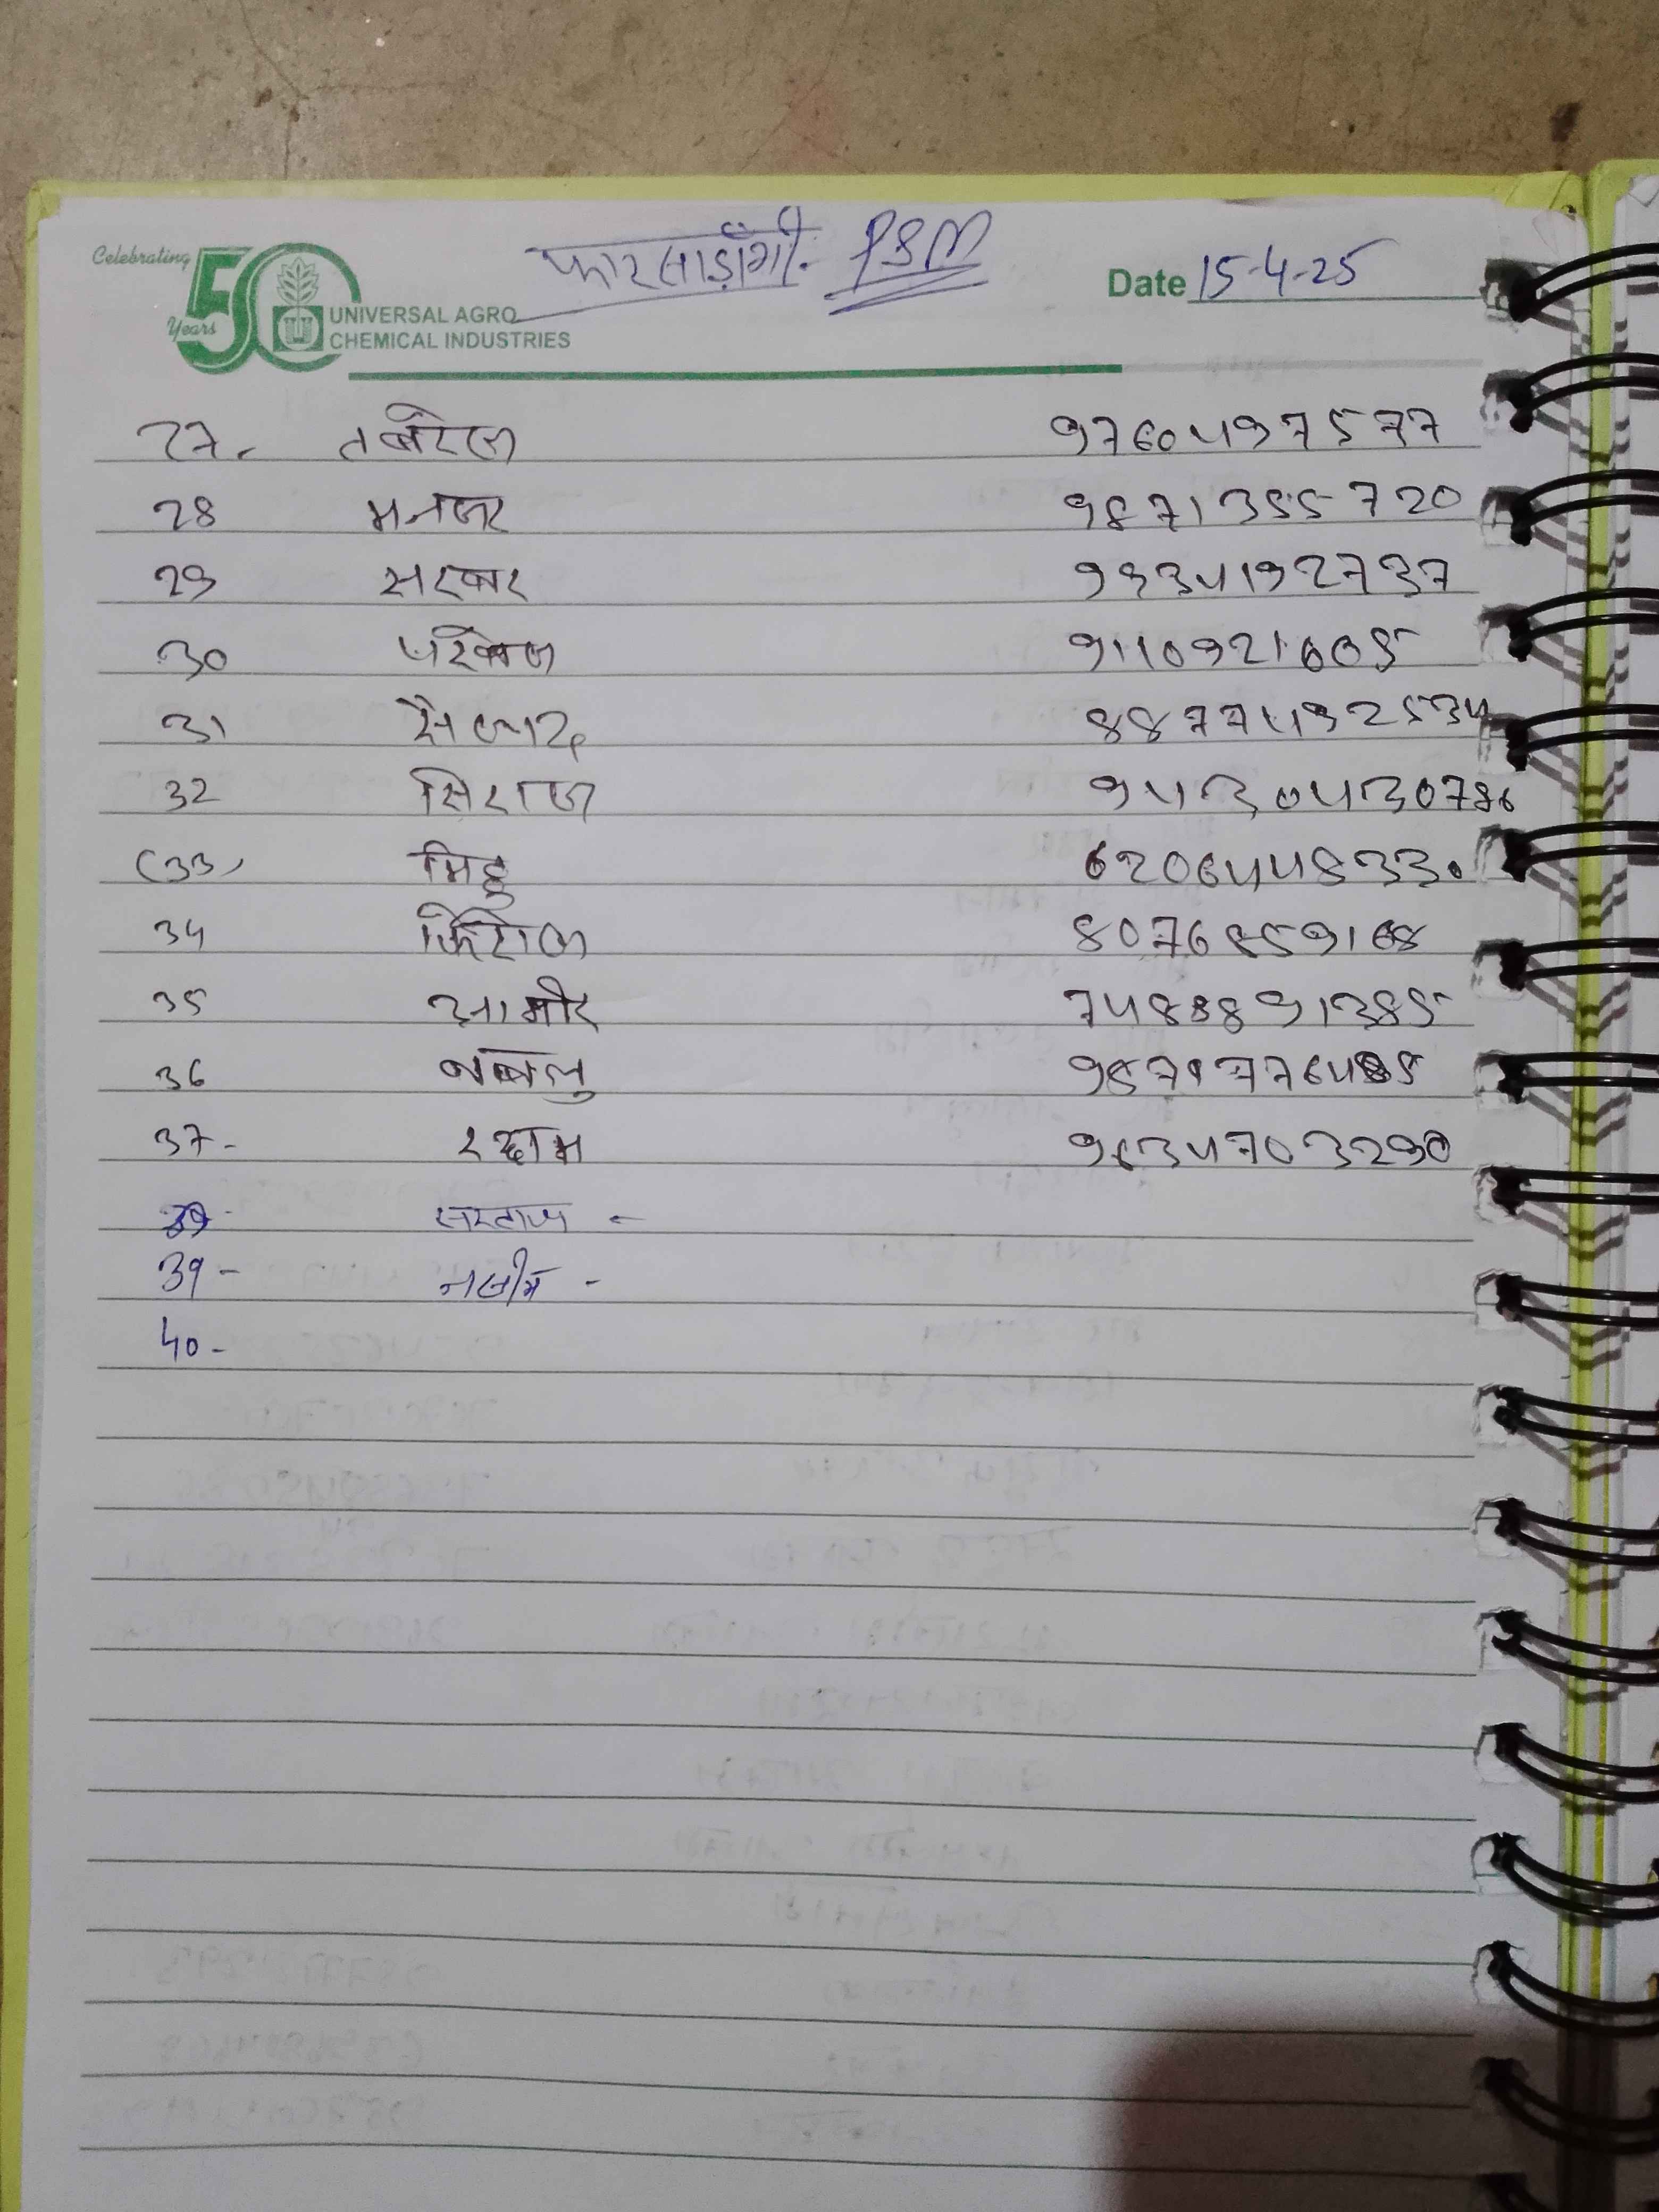 Celebrating 50 Years
UNIVERSAL AGRO
CHEMICAL INDUSTRIES
फारसाडाँगी:- PSM
Date 15-4-25
27. तबरेज 9760497577
28 मनजर 9871355720
29 सरवर 9934192737
30 परवेज 9110921605
31 सैज्जाद 8877492534
32 सिराज 9430430786
(33) मिट्ठु 6206448330
34 फिरोज 8076859168
35 आमीर 7488891385
36 बबलु
37- सद्दाम
सरताज -
39- नजीम -
40-